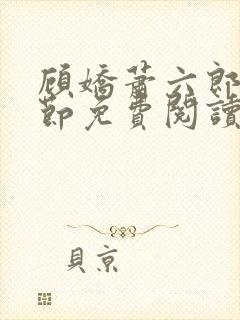 顾嬌蕭六郎
節免費閱讀
貝京